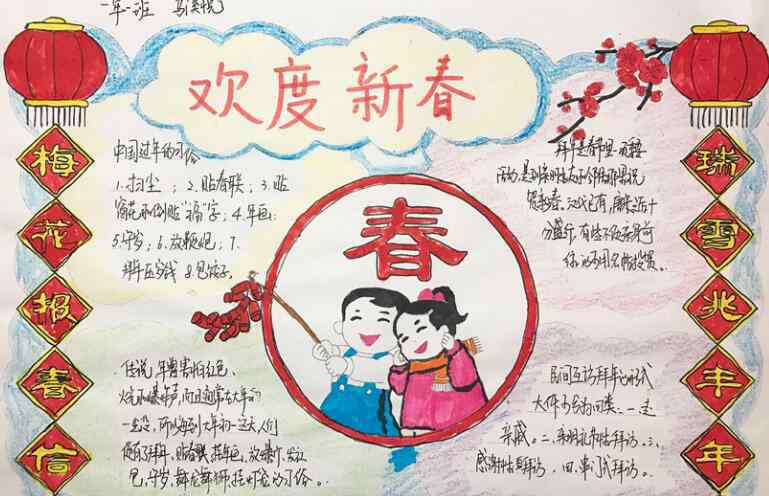 一年一班
欢度新春
梅花报春信
瑞雪兆丰年
春
中国过年的习俗
1.扫尘；2.贴春联；3.贴
窗花和倒贴“福”字；4.年画；
5.守岁；6.放鞭炮；7.
拜年压岁钱 8.包饺子。
传说，年兽害怕红色、
火光和爆炸声，而且通常在大年初
一出没，所以每到大年初一这天，人们
便有了拜年、贴春联、挂年画、放爆竹、发红
包、守岁、舞龙舞狮、挂灯笼的习俗。
拜年是春节里
贺新春，
分盛行，
民间互访拜年的形式
大体可分为四类：一、走
亲戚。二、礼节性拜访。三、
感谢性拜访。四、串门式拜访。